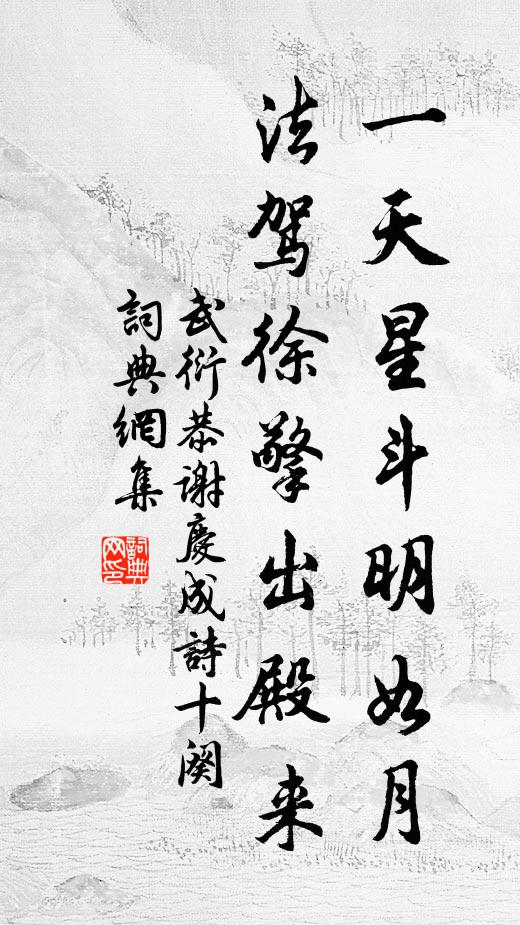 一天星斗明如月
法驾徐擎出殿来
武衍恭謝慶成詩十闋
詞典網集
詞典網印